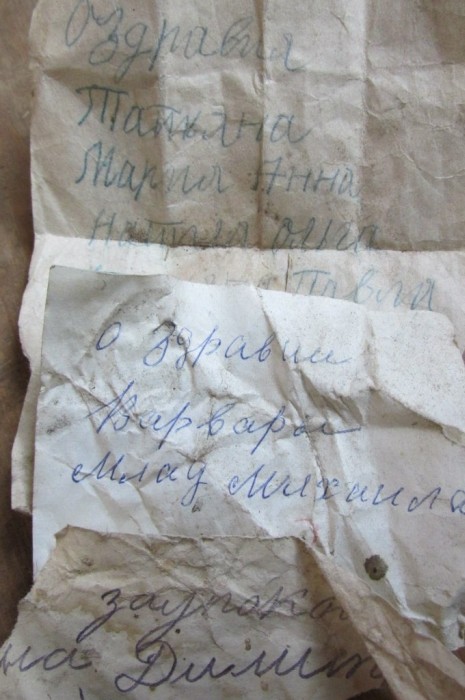 О Здравия
Татьяна
Мария Анна
Ольга
Павла
о здравии
Варвары
Млад Михаила
заупоко
на Димит